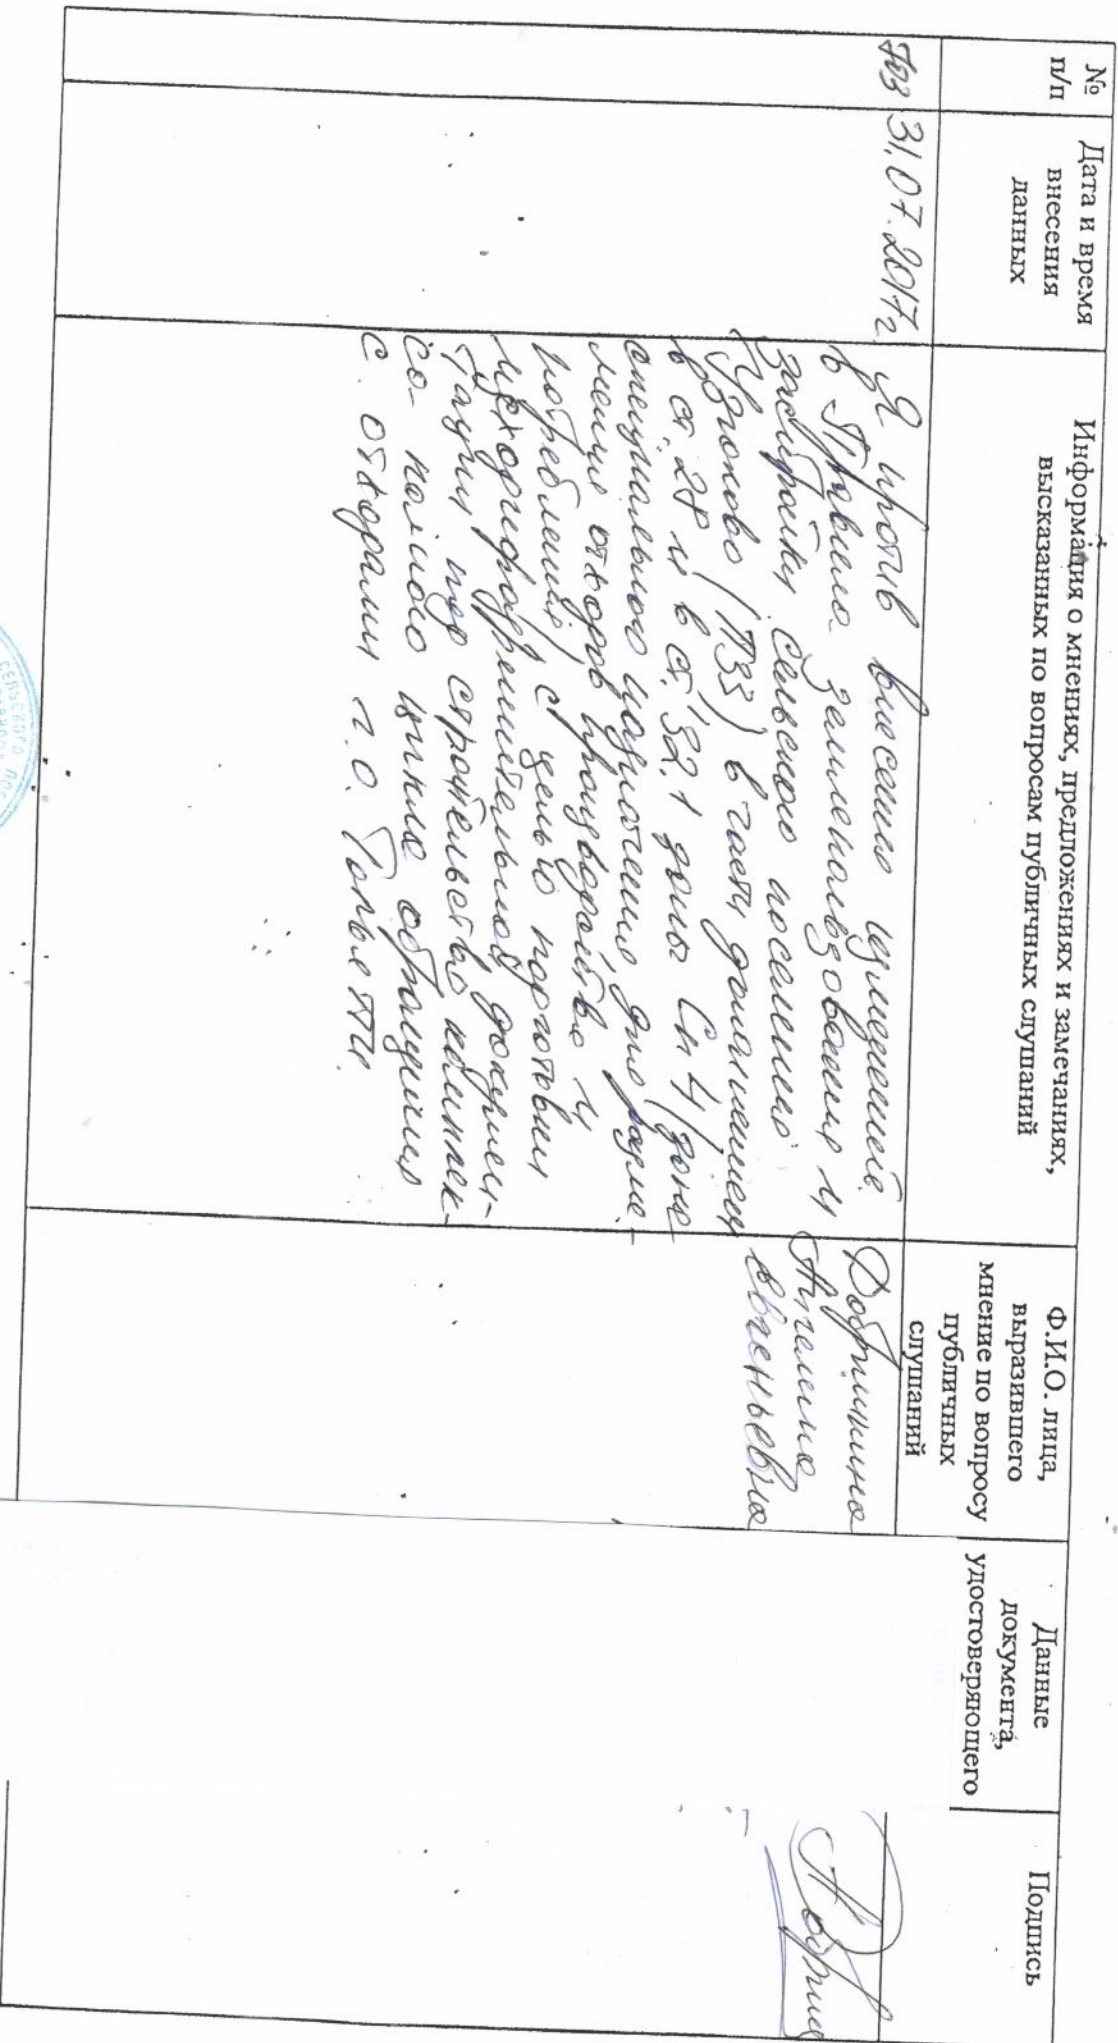 №
п/п
Дата и время
внесения
данных
Информация о мнениях, предложениях и замечаниях,
высказанных по вопросам публичных слушаний
Ф.И.О. лица,
выразившего
мнение по вопросу
публичных
слушаний
Данные
документа,
удостоверяющего
Подпись
703
31.07.2017г.
Я против внесения изменений
в Правила землепользования и
застройки сельского поселения
Узюково (ПЗЗ) в части дополнения
в ст. 28 и в ст. 32.1 зоны Сп 4 (зона
специального назначения для разме-
щения отходов производства и
потребления) с целью подготовки
исходноразрешительной докумен-
тации под строительство комплек-
са полного цикла обращения
с отходами г.о. Тольятти.
Ангелина
Евгеньевна
СЕЛЬСКОГО